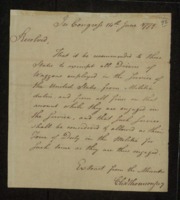 In Congress 14th June 1777
Resolved,
That it be recommended to the
State to exempt all Drivers of
Waggons employed in the Service
of the United States from Militia
duties and from all fines on that
account while they are engaged in
the Service, and that such Service
shall be considered & allowed as their
Turn of Duty in the Militia for
such time as they are thus engaged.
Extract from the Minutes
Chas Thomson secy